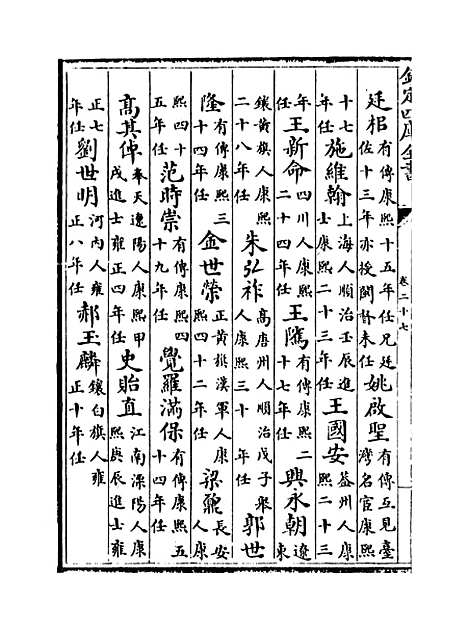 欽定四庫全書
卷二十七
廷相有傳康熙十五年任兄廷佐十三年亦授閩督未任姚啟聖有傳互見臺灣名宦康熙
十七年任施維翰上海人順治壬辰進士康熙二十三年任王國安蓋州人康熙二十三
年任王新命四川人康熙二十四年任王騭有傳康熙二十七年任興永朝遼東
鑲黃旗人康熙二十八年任朱弘祚高唐州人順治戊子舉人康熙三十 年任郭世
隆有傳康熙三十四年任金世榮正黃旗漢軍人康熙四十二年任梁鼐長安人康
熙四十五年任范時崇有傳康熙四十九年任覺羅滿保有傳康熙五十四年任
高其倬奉天遼陽人康熙甲戌進士雍正四年任史貽直江南溧陽人康熙庚辰進士雍
正七年任劉世明河內人雍正八年任郝玉麟鑲白旗人雍正十年任